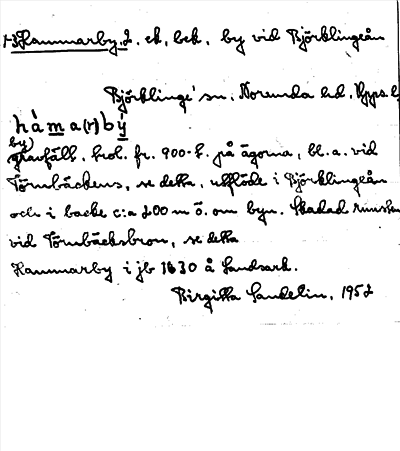 1-3 Hammarby, 2. ek, bek. by vid Björklingeån
Björklinge sn. Norunda hd. Upps. l.
hàma(r)bý
by)
gravfält. trol. fr. 900-t. på ägorna, bl.a. vid
Törnbäckens, se detta, utflöde i Björklingeån
och i backe c:a 200 m ö. om byn. Skadad runsten
vid Törnbäcksbron, se detta
Hammarby i jb 1630 å Landsark.
Birgitta Sandelin, 1952